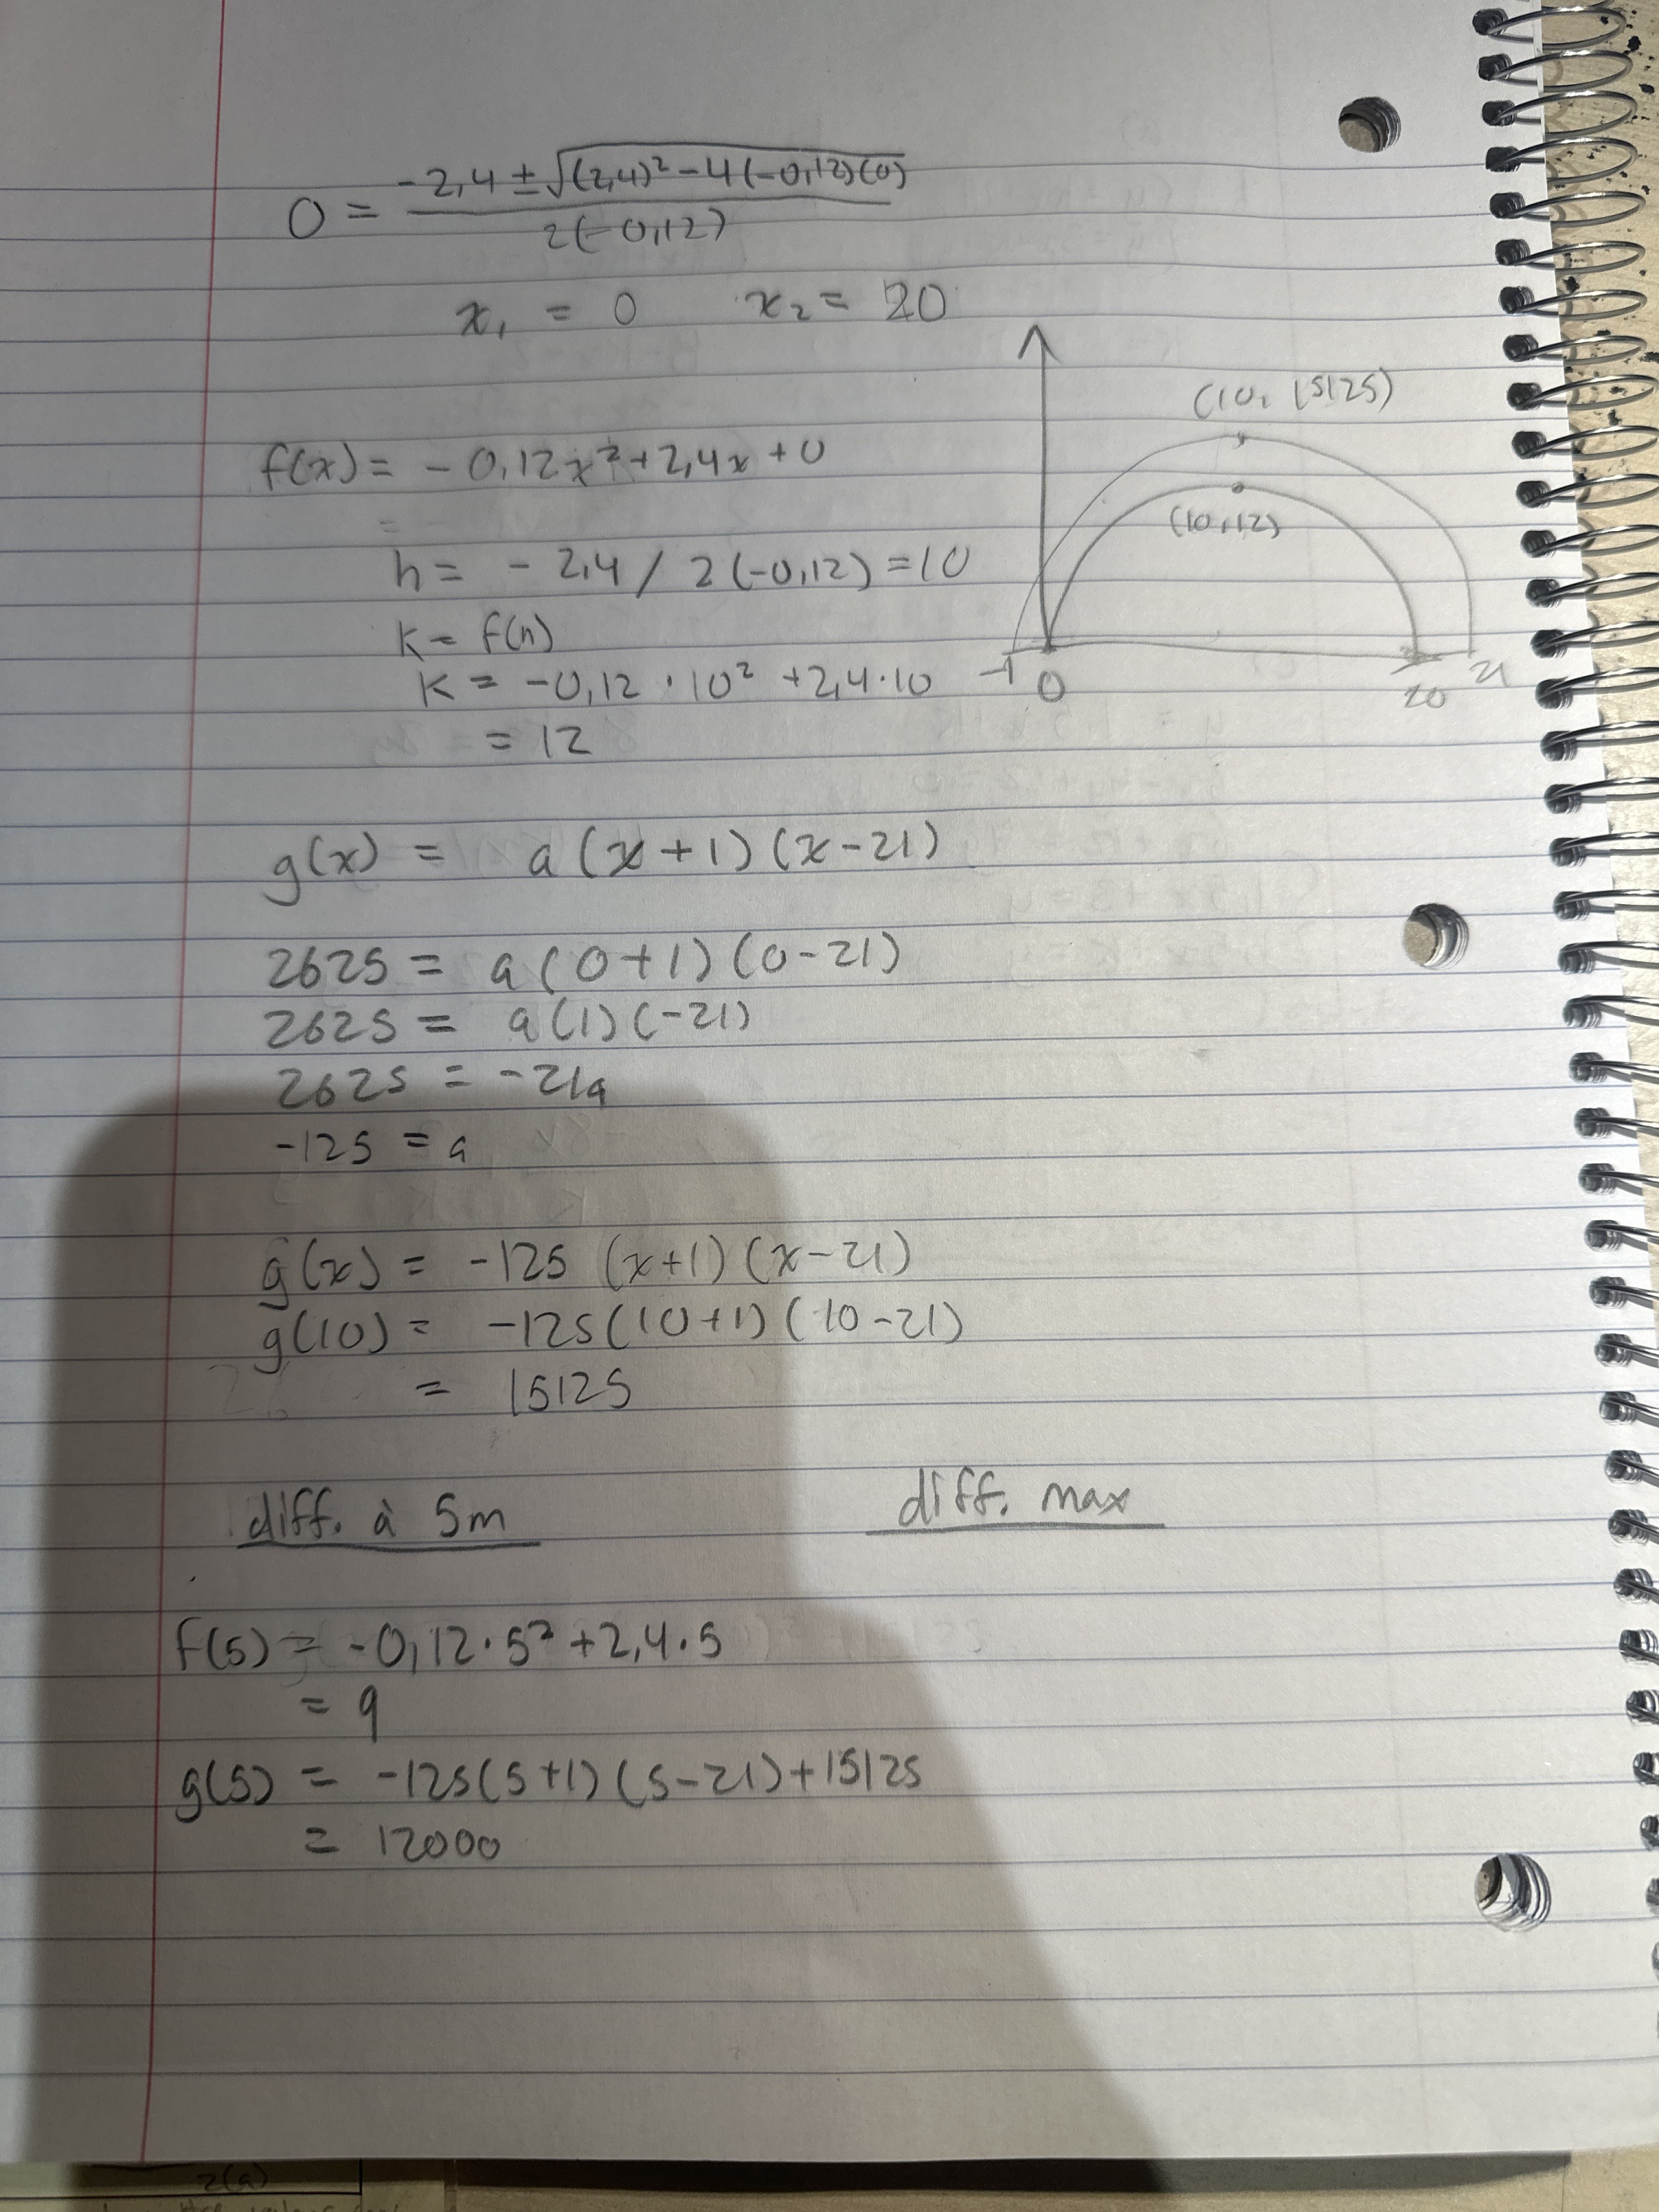 0 = -2,4 ± √(2,4)² - 4(-0,12)(0) / 2(-0,12)
x₁ = 0 x₂ = 20
(10, 15125)
(10,12)
-1 0 20 21
f(x) = -0,12x² + 2,4x + 0
=
h = -2,4 / 2(-0,12) = 10
K = f(h)
K = -0,12 · 10² + 2,4 · 10
= 12
g(x) = a(x+1)(x-21)
2625 = a(0+1)(0-21)
2625 = a(1)(-21)
2625 = -21a
-125 = a
g(x) = -125 (x+1)(x-21)
g(10) = -125(10+1)(10-21)
= 15125
diff. à 5m diff. max
f(5) = -0,12 · 5² + 2,4 · 5
= 9
g(5) = -125(5+1)(5-21)+15125
= 12000
2(a)